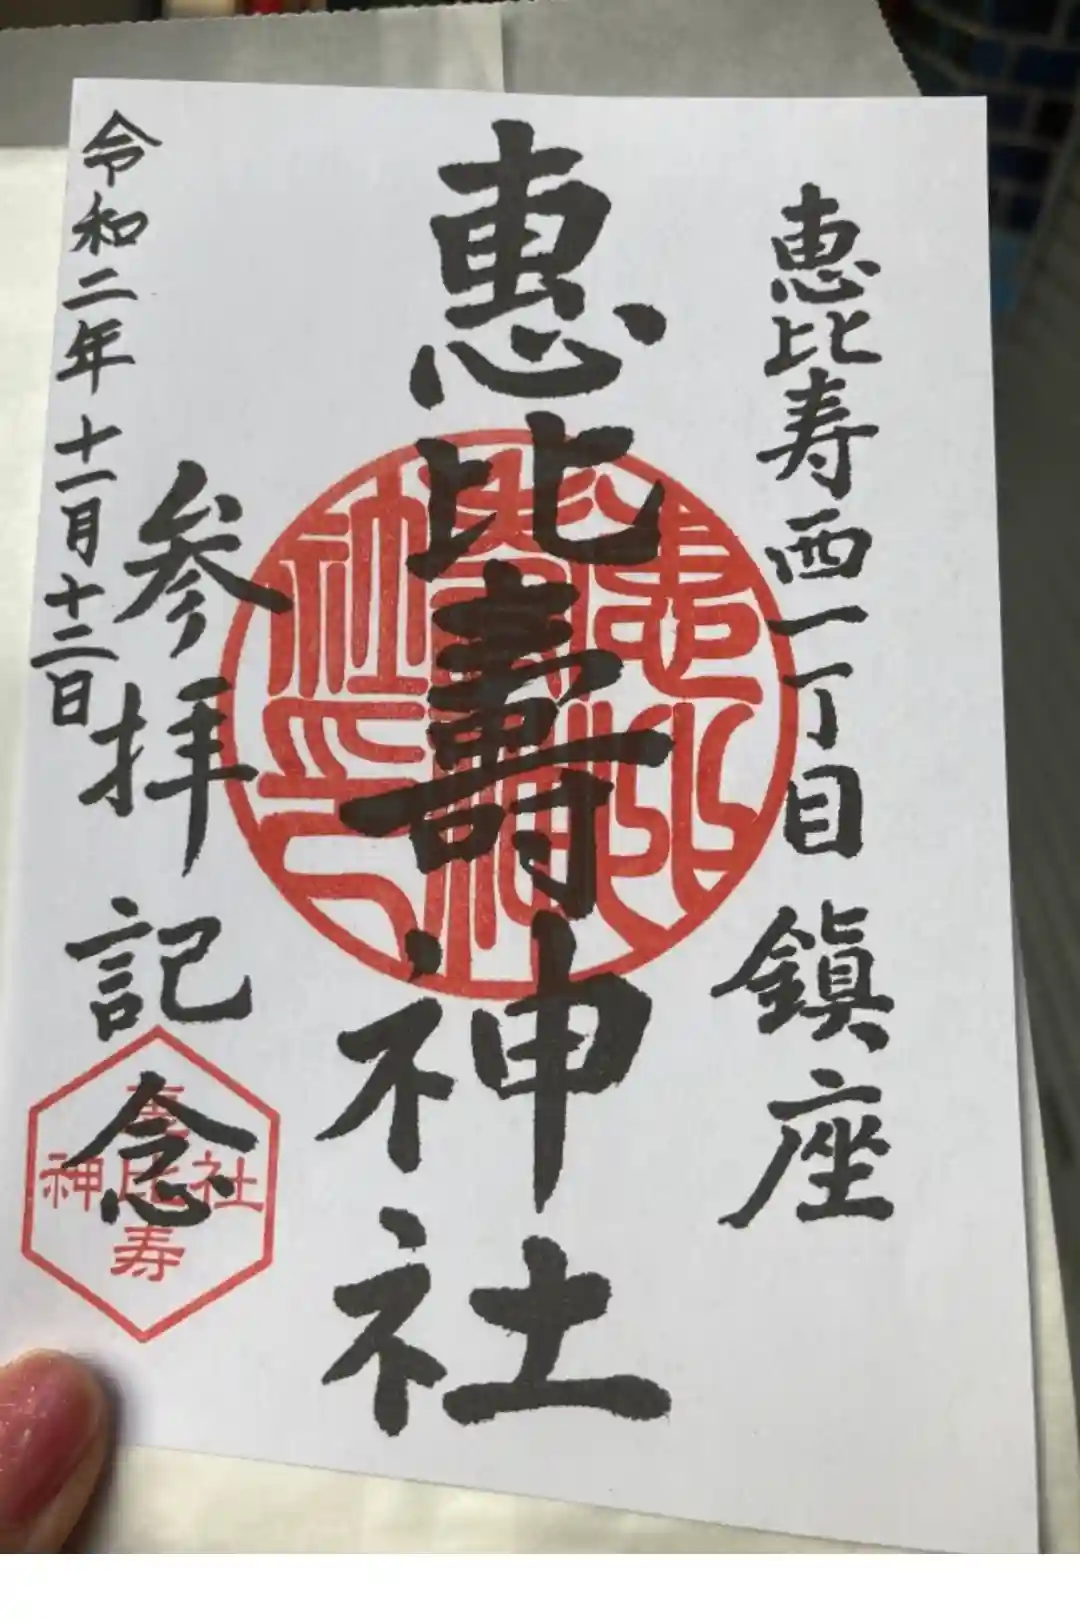 恵比寿西一丁目 鎮座
恵比壽神社
参拝記念
令和二年十一月十二日
恵比寿
神社